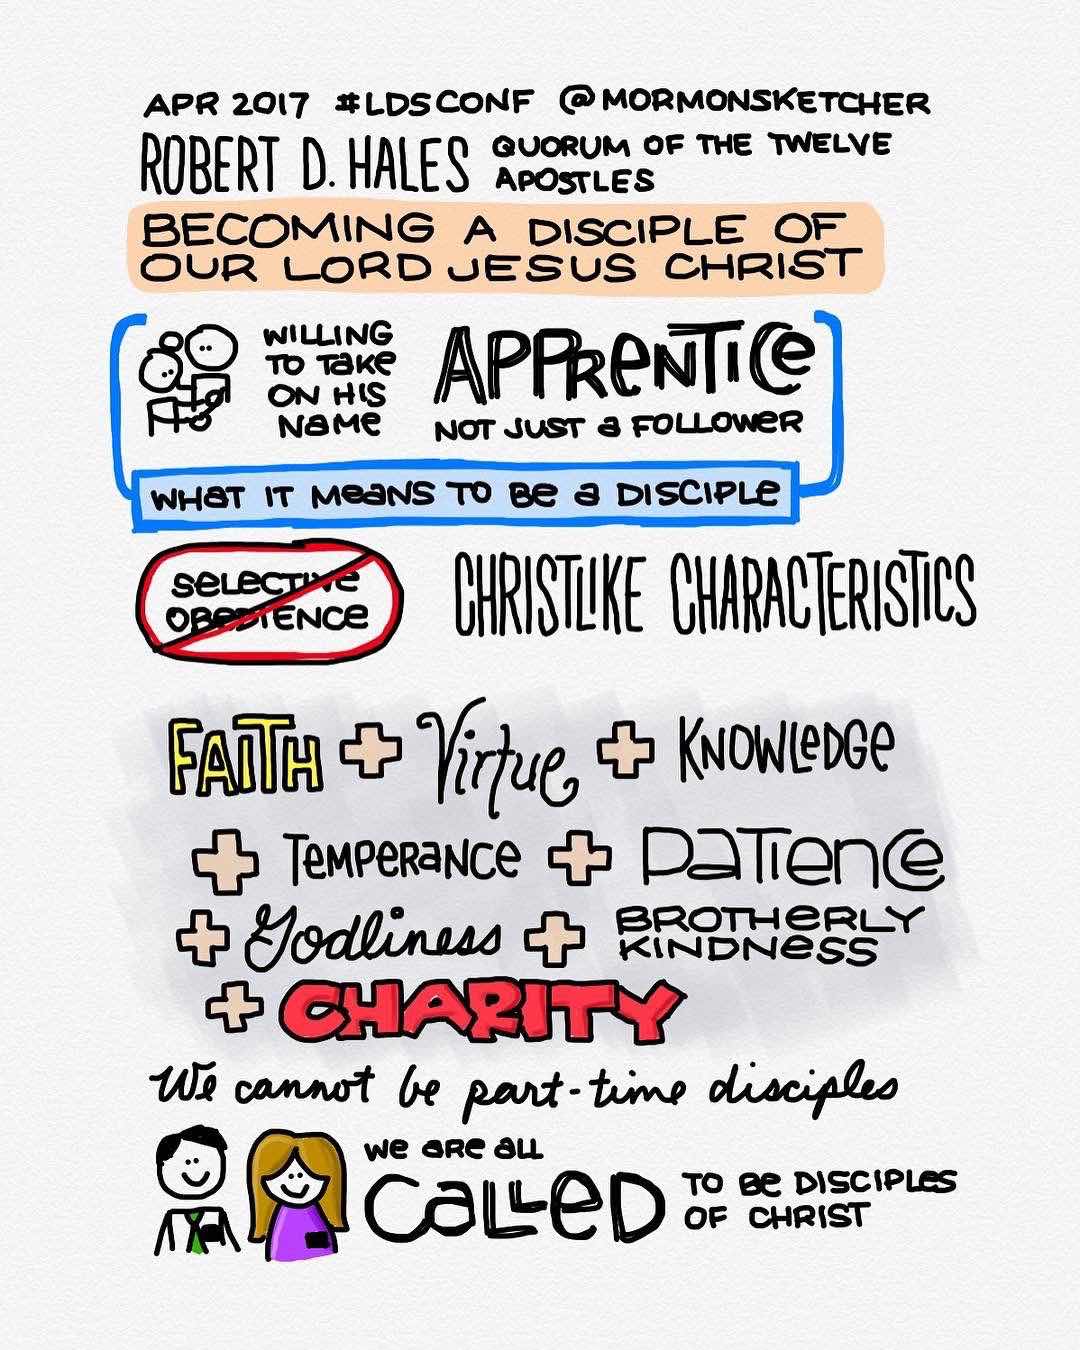 APR 2017 #LDSCONF @MORMONSKETCHER
ROBERT D. HALES QUORUM OF THE TWELVE
APOSTLES
BECOMING A DISCIPLE OF
OUR LORD JESUS CHRIST
WILLING
TO TaKe
ON HIS
NaMe
APPReNTICe
NOT JUST a FOLLOWeR
WHaT IT MeaNS TO Be a DISCIPLe
SeLeCTIVe
OBeDIENCe
CHRISTLIKE CHARACTERISTICS
FAITH + Virtue + KNOWLeDGe
+ TeMPeRaNCe + PaTIenCe
+ Godliness + BROTHeRLY
KINDNeSS
+ CHARITY
We cannot be part-time disciples
We aRe aLL
CaLLeD
TO Be DISCIPLeS
OF CHRIST